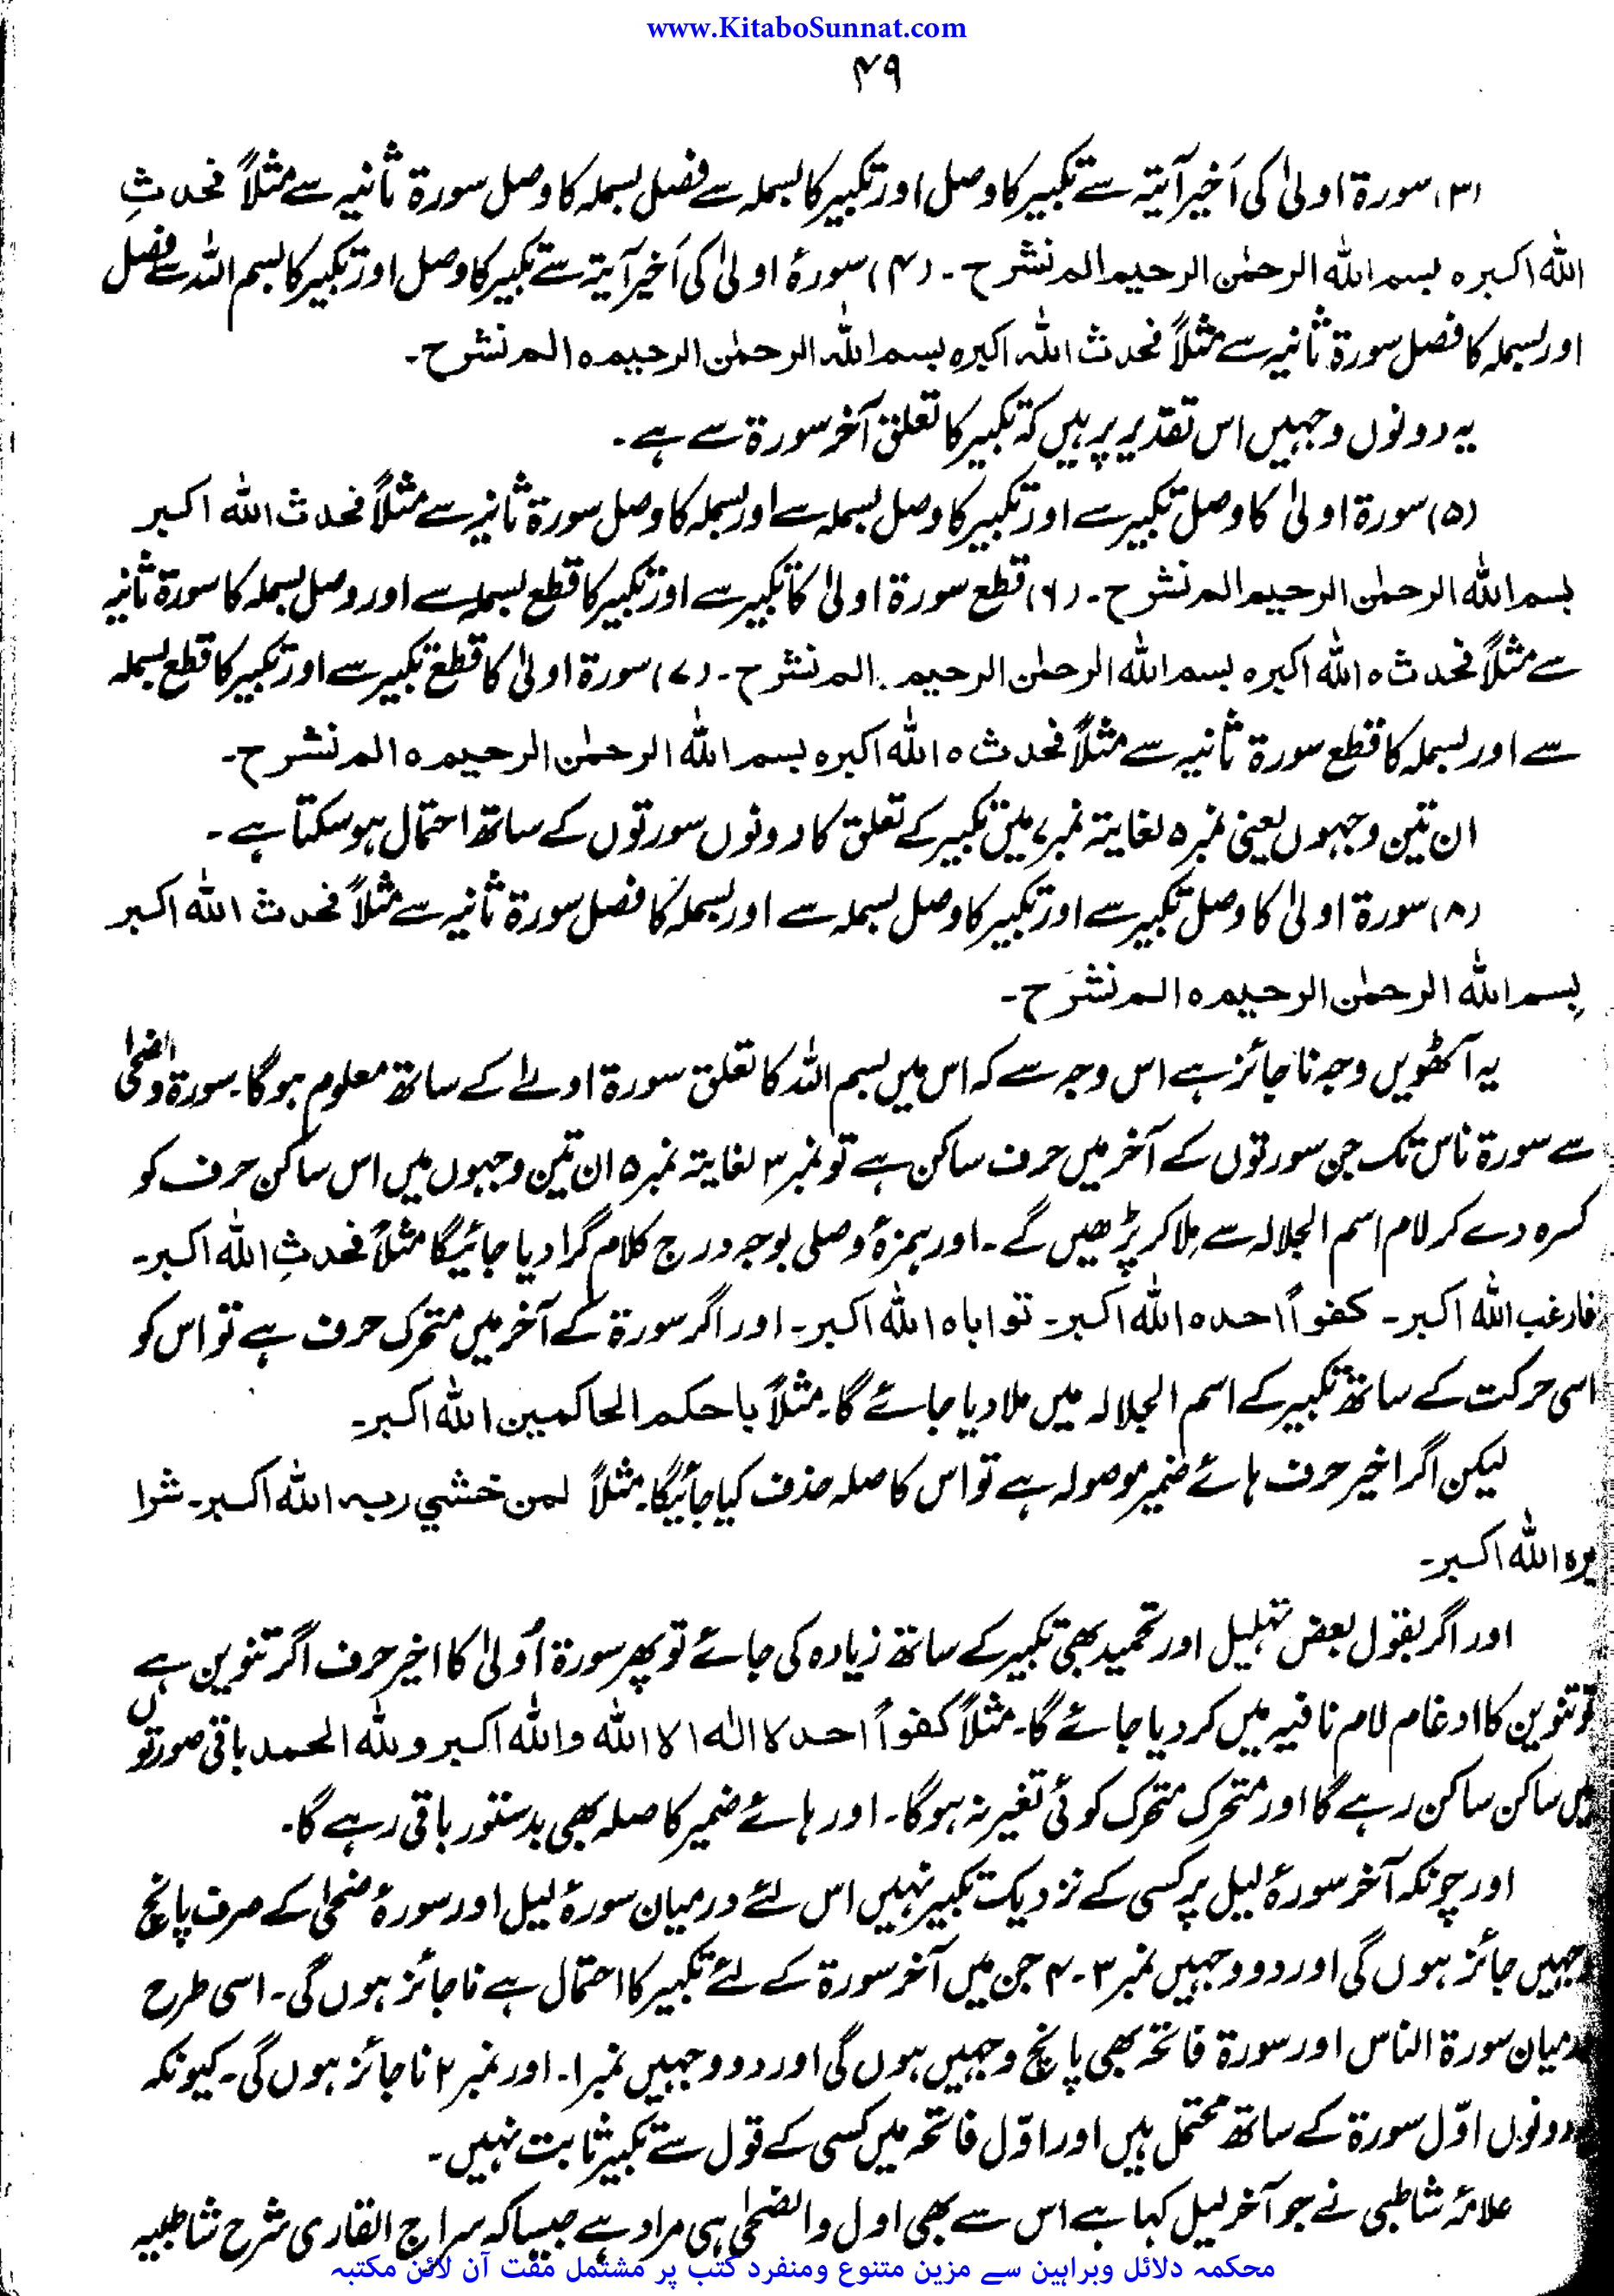 www.KitaboSunnat.com
۴۹
(۳) سورۃ اولیٰ کی اَخیر آیتہ سے تکبیر کا وصل اور تکبیر کا بسملہ سے فصل بسملہ کا وصل سورۃ ثانیہ سے مثلاً فحدثِ
اللہ اکبر ہ بسم اللہ الرحمٰن الرحیم الم نشرح۔ (۴) سورۂ اولیٰ کی اَخیر آیتہ سے تکبیر کا وصل اور تکبیر کا بسم اللہ سے فصل
اور بسملہ کا فصل سورۃ ثانیہ سے مثلاً فحدث اللہ اکبر ہ بسم اللہ الرحمٰن الرحیم ہ الم نشرح۔
یہ دونوں وجہیں اس تقدیر پر ہیں کہ تکبیر کا تعلق آخر سورۃ سے ہے۔
(۵) سورۃ اولیٰ کا وصل تکبیر سے اور تکبیر کا وصل بسملہ سے اور بسملہ کا وصل سورۃ ثانیہ سے مثلاً فحدث اللہ اکبر
بسم اللہ الرحمٰن الرحیم الم نشرح۔ (۶) قطع سورۃ اولیٰ کا تکبیر سے اور تکبیر کا قطع بسملہ سے اور وصل بسملہ کا سورۃ ثانیہ
سے مثلاً فحدث ہ اللہ اکبر ہ بسم اللہ الرحمٰن الرحیم الم نشرح۔ (۷) سورۃ اولیٰ کا قطع تکبیر سے اور تکبیر کا قطع بسملہ
سے اور بسملہ کا قطع سورۃ ثانیہ سے مثلاً فحدث ہ اللہ اکبر ہ بسم اللہ الرحمٰن الرحیم ہ الم نشرح۔
ان تین وجہوں یعنی نمبر ۵ لغایتہ نمبر ۷ میں تکبیر کے تعلق کا دونوں سورتوں کے ساتھ احتمال ہو سکتا ہے۔
(۸) سورۃ اولیٰ کا وصل تکبیر سے اور تکبیر کا وصل بسملہ سے اور بسملہ کا فصل سورۃ ثانیہ سے مثلاً فحدث اللہ اکبر
بِسم اللہ الرحمٰن الرحیم ہ الم نشرَح۔
یہ آٹھویں وجہ ناجائز ہے اس وجہ سے کہ اس میں بسم اللہ کا تعلق سورۃ اولےٰ کے ساتھ معلوم ہوگا۔ سورۃ والضحیٰ
سے سورۃ ناس تک جن سورتوں کے آخر میں حرف ساکن ہے تو نمبر ۳ لغایتہ نمبر ۵ ان تین وجہوں میں اس ساکن حرف کو
کسرہ دے کر لام اسم الجلالہ سے ملا کر پڑھیں گے۔ اور ہمزۂ وصلی بوجہ درج کلام گرا دیا جائیگا مثلاً فحدثِ اللہ اکبر۔
فارغب اللہ اکبر۔ کفواً احد ہ اللہ اکبر۔ توابا ہ اللہ اکبر۔ اور اگر سورۃ کے آخر میں متحرک حرف ہے تو اس کو
اسی حرکت کے ساتھ تکبیر کے اسم الجلالہ میں ملا دیا جائے گا۔ مثلاً باحکم الحاکمین اللہ اکبر۔
لیکن اگر اخیر حرف ہائے ضمیر موصولہ ہے تو اس کا صلہ حذف کیا جائیگا۔ مثلاً لمن خشي ربہ اللہ اکبر۔ شرا
یرہ اللہ اکبر۔
اور اگر بقول بعض تہلیل اور تحمید بھی تکبیر کے ساتھ زیادہ کی جائے تو پھر سورۃ اُولیٰ کا اخیر حرف اگر تنوین ہے
تو تنوین کا ادغام لام نافیہ میں کر دیا جائے گا۔ مثلاً کفواً احد لا الٰہ الا اللہ واللہ اکبر وللہ الحمد باقی صورتوں
میں ساکن ساکن رہے گا اور متحرک متحرک کوئی تغیر نہ ہوگا۔ اور ہائے ضمیر کا صلہ بھی بدستور باقی رہے گا۔
اور چونکہ آخر سورۂ لیل پر کسی کے نزدیک تکبیر نہیں اس لئے درمیان سورۂ لیل اور سورۂ ضحیٰ کے صرف پانچ
وجہیں جائز ہوں گی اور دو وجہیں نمبر ۳۔۴ جن میں آخر سورۃ کے لئے تکبیر کا احتمال ہے ناجائز ہوں گی۔ اسی طرح
درمیان سورۃ الناس اور سورۃ فاتحہ بھی پانچ وجہیں ہوں گی اور دو وجہیں نمبر ۱۔ اور نمبر ۲ ناجائز ہوں گی۔ کیونکہ
دونوں اوّل سورۃ کے ساتھ محتمل ہیں اور اوّل فاتحہ میں کسی کے قول سے تکبیر ثابت نہیں۔
علامہ شاطبی نے جو آخر لیل کہا ہے اس سے بھی اول والضحیٰ ہی مراد ہے جیسا کہ سراج القاری شرح شاطبیہ
محکمہ دلائل وبراہین سے مزین متنوع ومنفرد کتب پر مشتمل مفت آن لائن مکتبہ